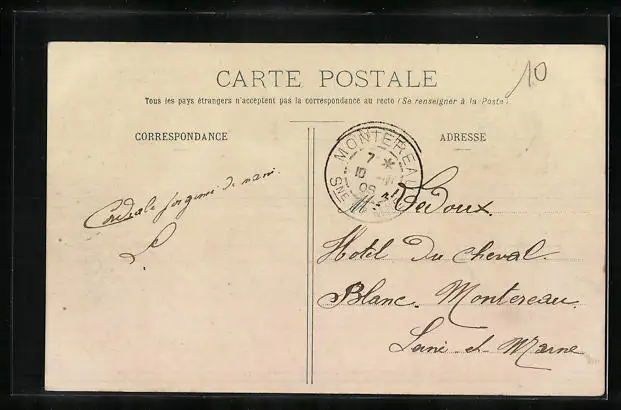 10
CARTE POSTALE
Tous les pays étrangers n'acceptent pas la correspondance au recto (Se renseigner à la Poste)
CORRESPONDANCE
ADRESSE
MONTEREAU
7 *
10
SNE
Cordiale de
L
Ledoux.
Hotel Du Cheval
Blanc. Montereau
Seine et Marne